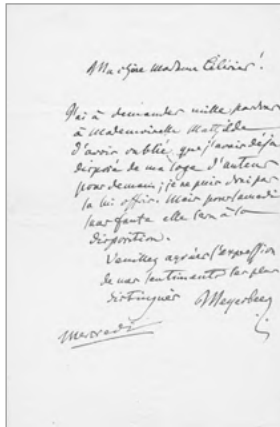 Ma chère Madame
J'ai à demander mille pardons
à Mademoiselle Mathilde
d'avoir oublié, que j'avais déjà
disposé de ma loge d'auteur
pour demain; je ne puis donc pas
la lui offrir. Mais pour samedi
elle sera à sa
disposition.
Veuillez agréer l'expression
de mes sentiments les plus
distingués Meyerbeer
Mercredi